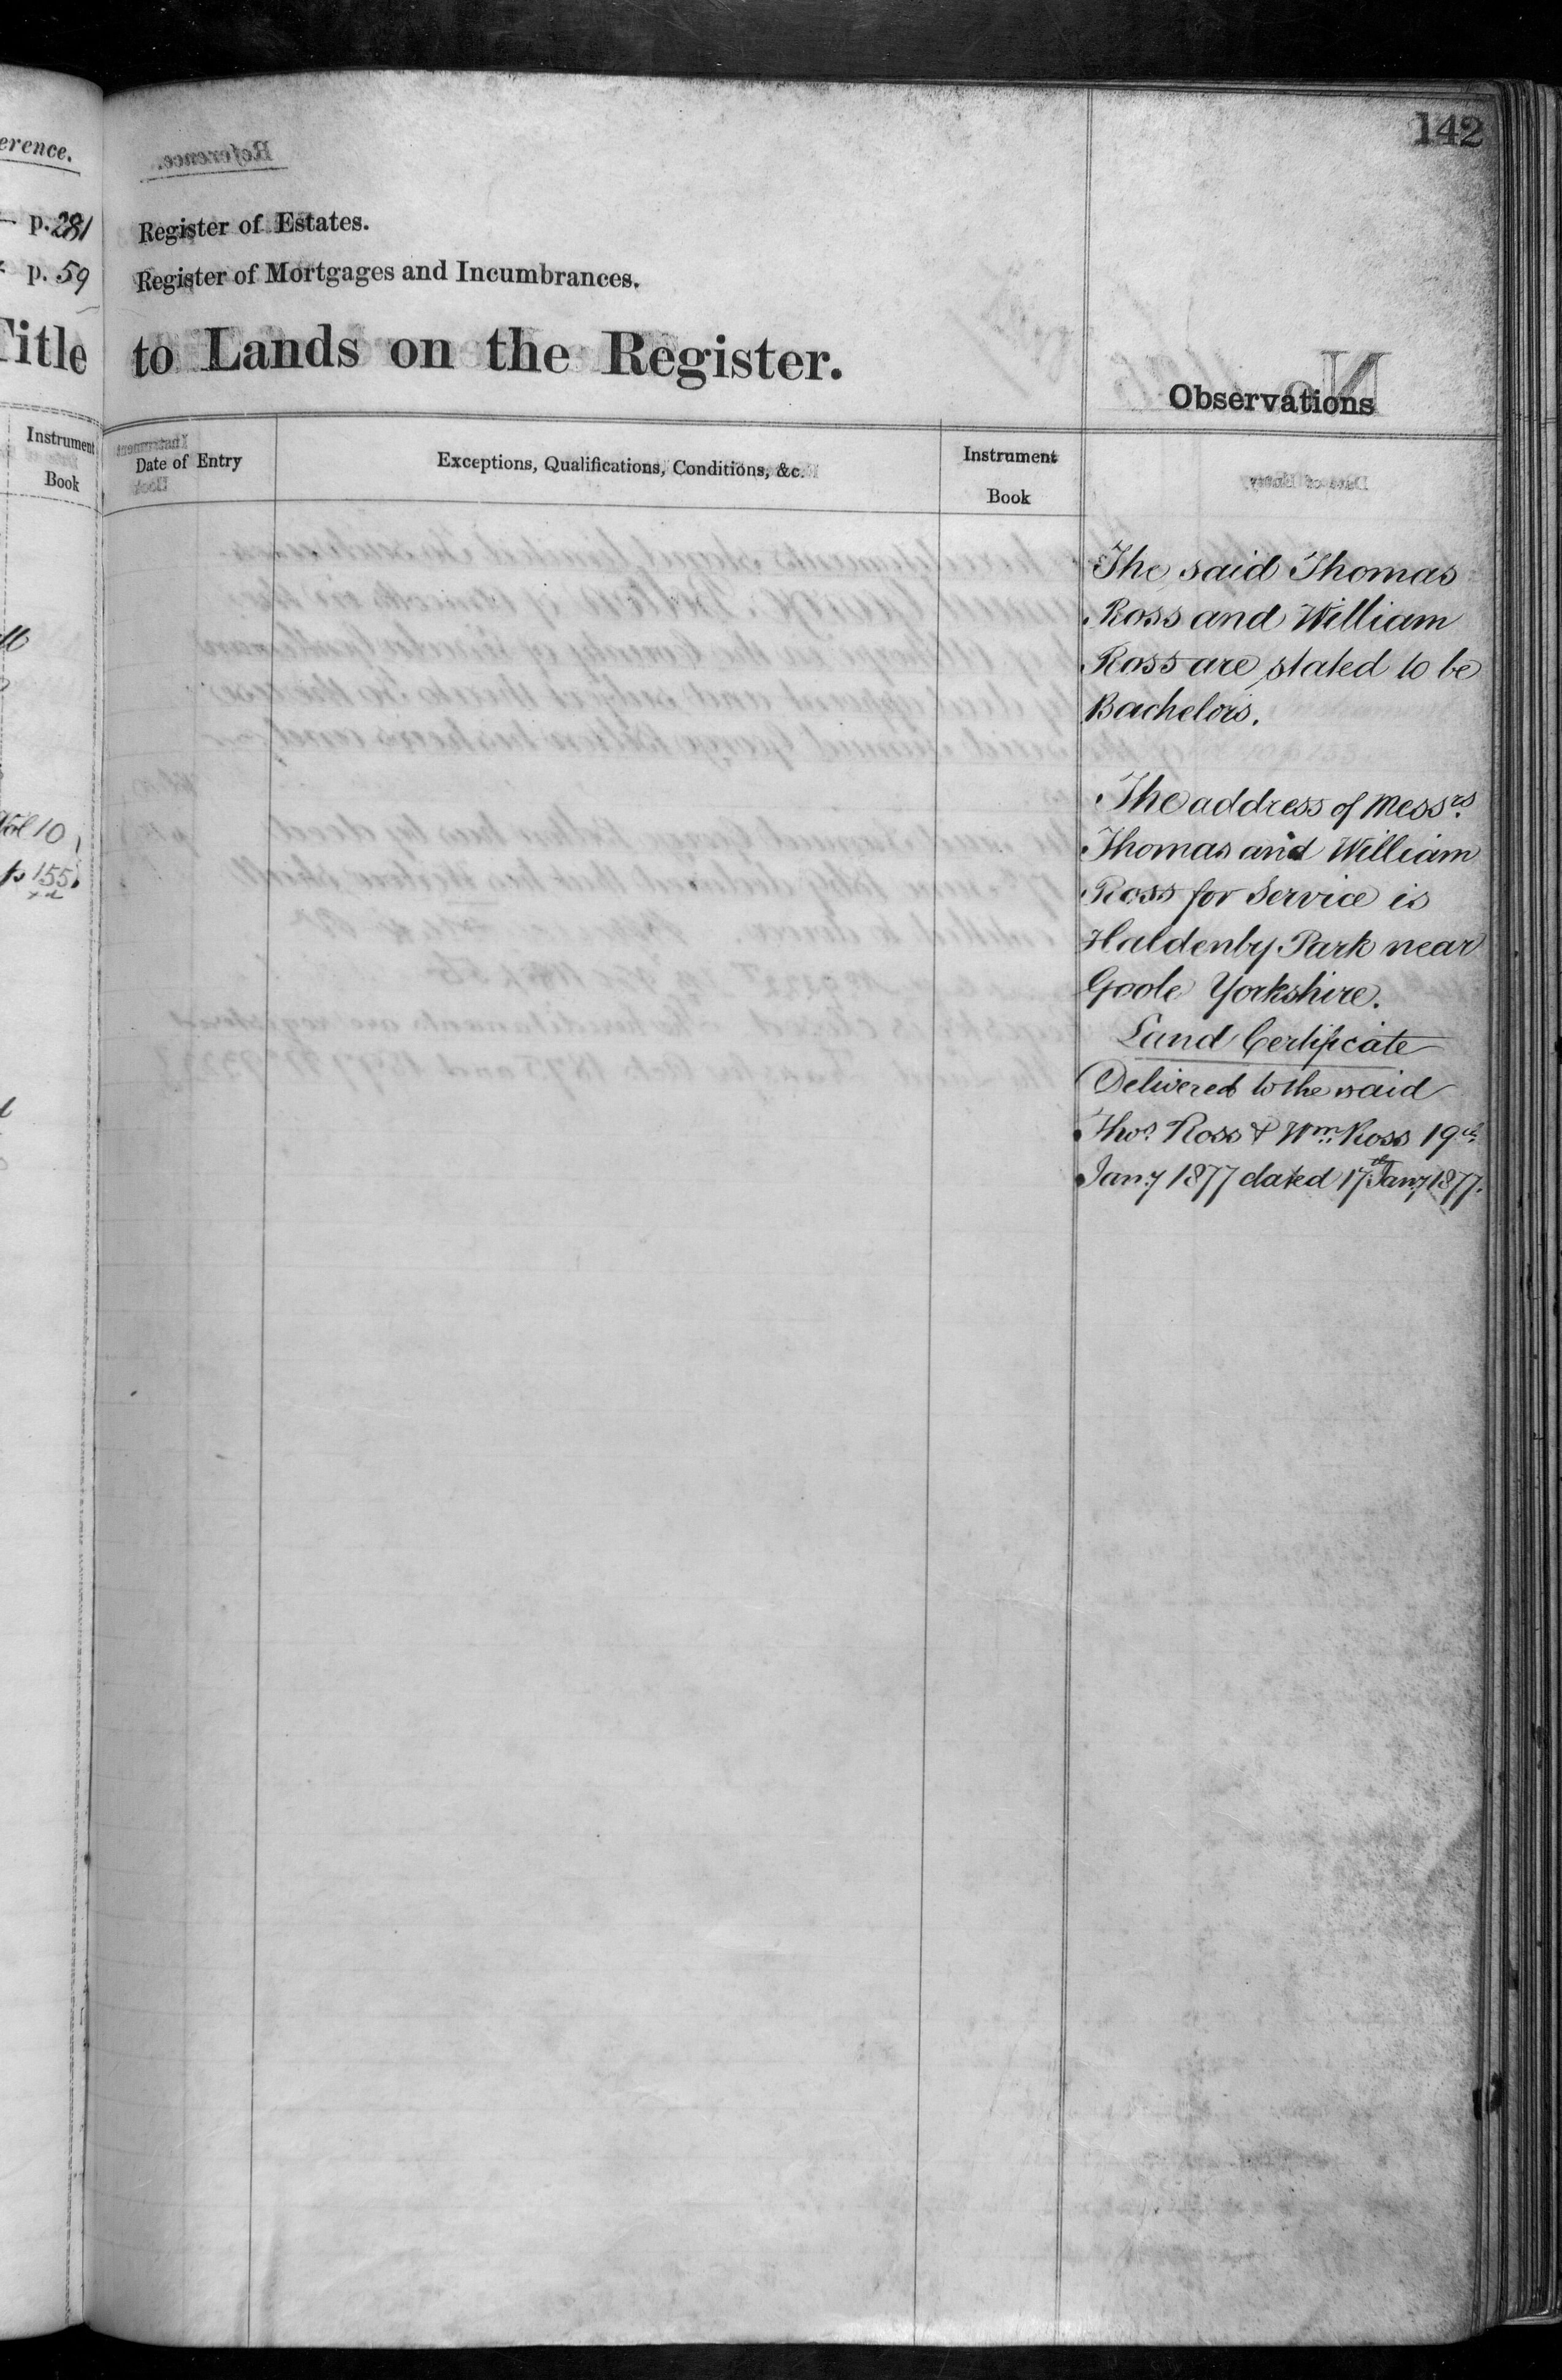 142
erence.
p. 281
p. 59
Title
Instrument
Book
Vol 10
p 155
Register of Estates.
Register of Mortgages and Incumbrances.
to Lands on the Register.
Observations
Date of Entry
Exceptions, Qualifications, Conditions, &c.
Instrument
Book
The said Thomas
Ross and William
Ross are stated to be
Bachelors.
The address of Messrs.
Thomas and William
Ross for Service is
Haldenby Park near
Goole Yorkshire.
Land Certificate
Delivered to the said
Thos. Ross & Wm. Ross 19th
Jany 1877 dated 17th Jany 1877.